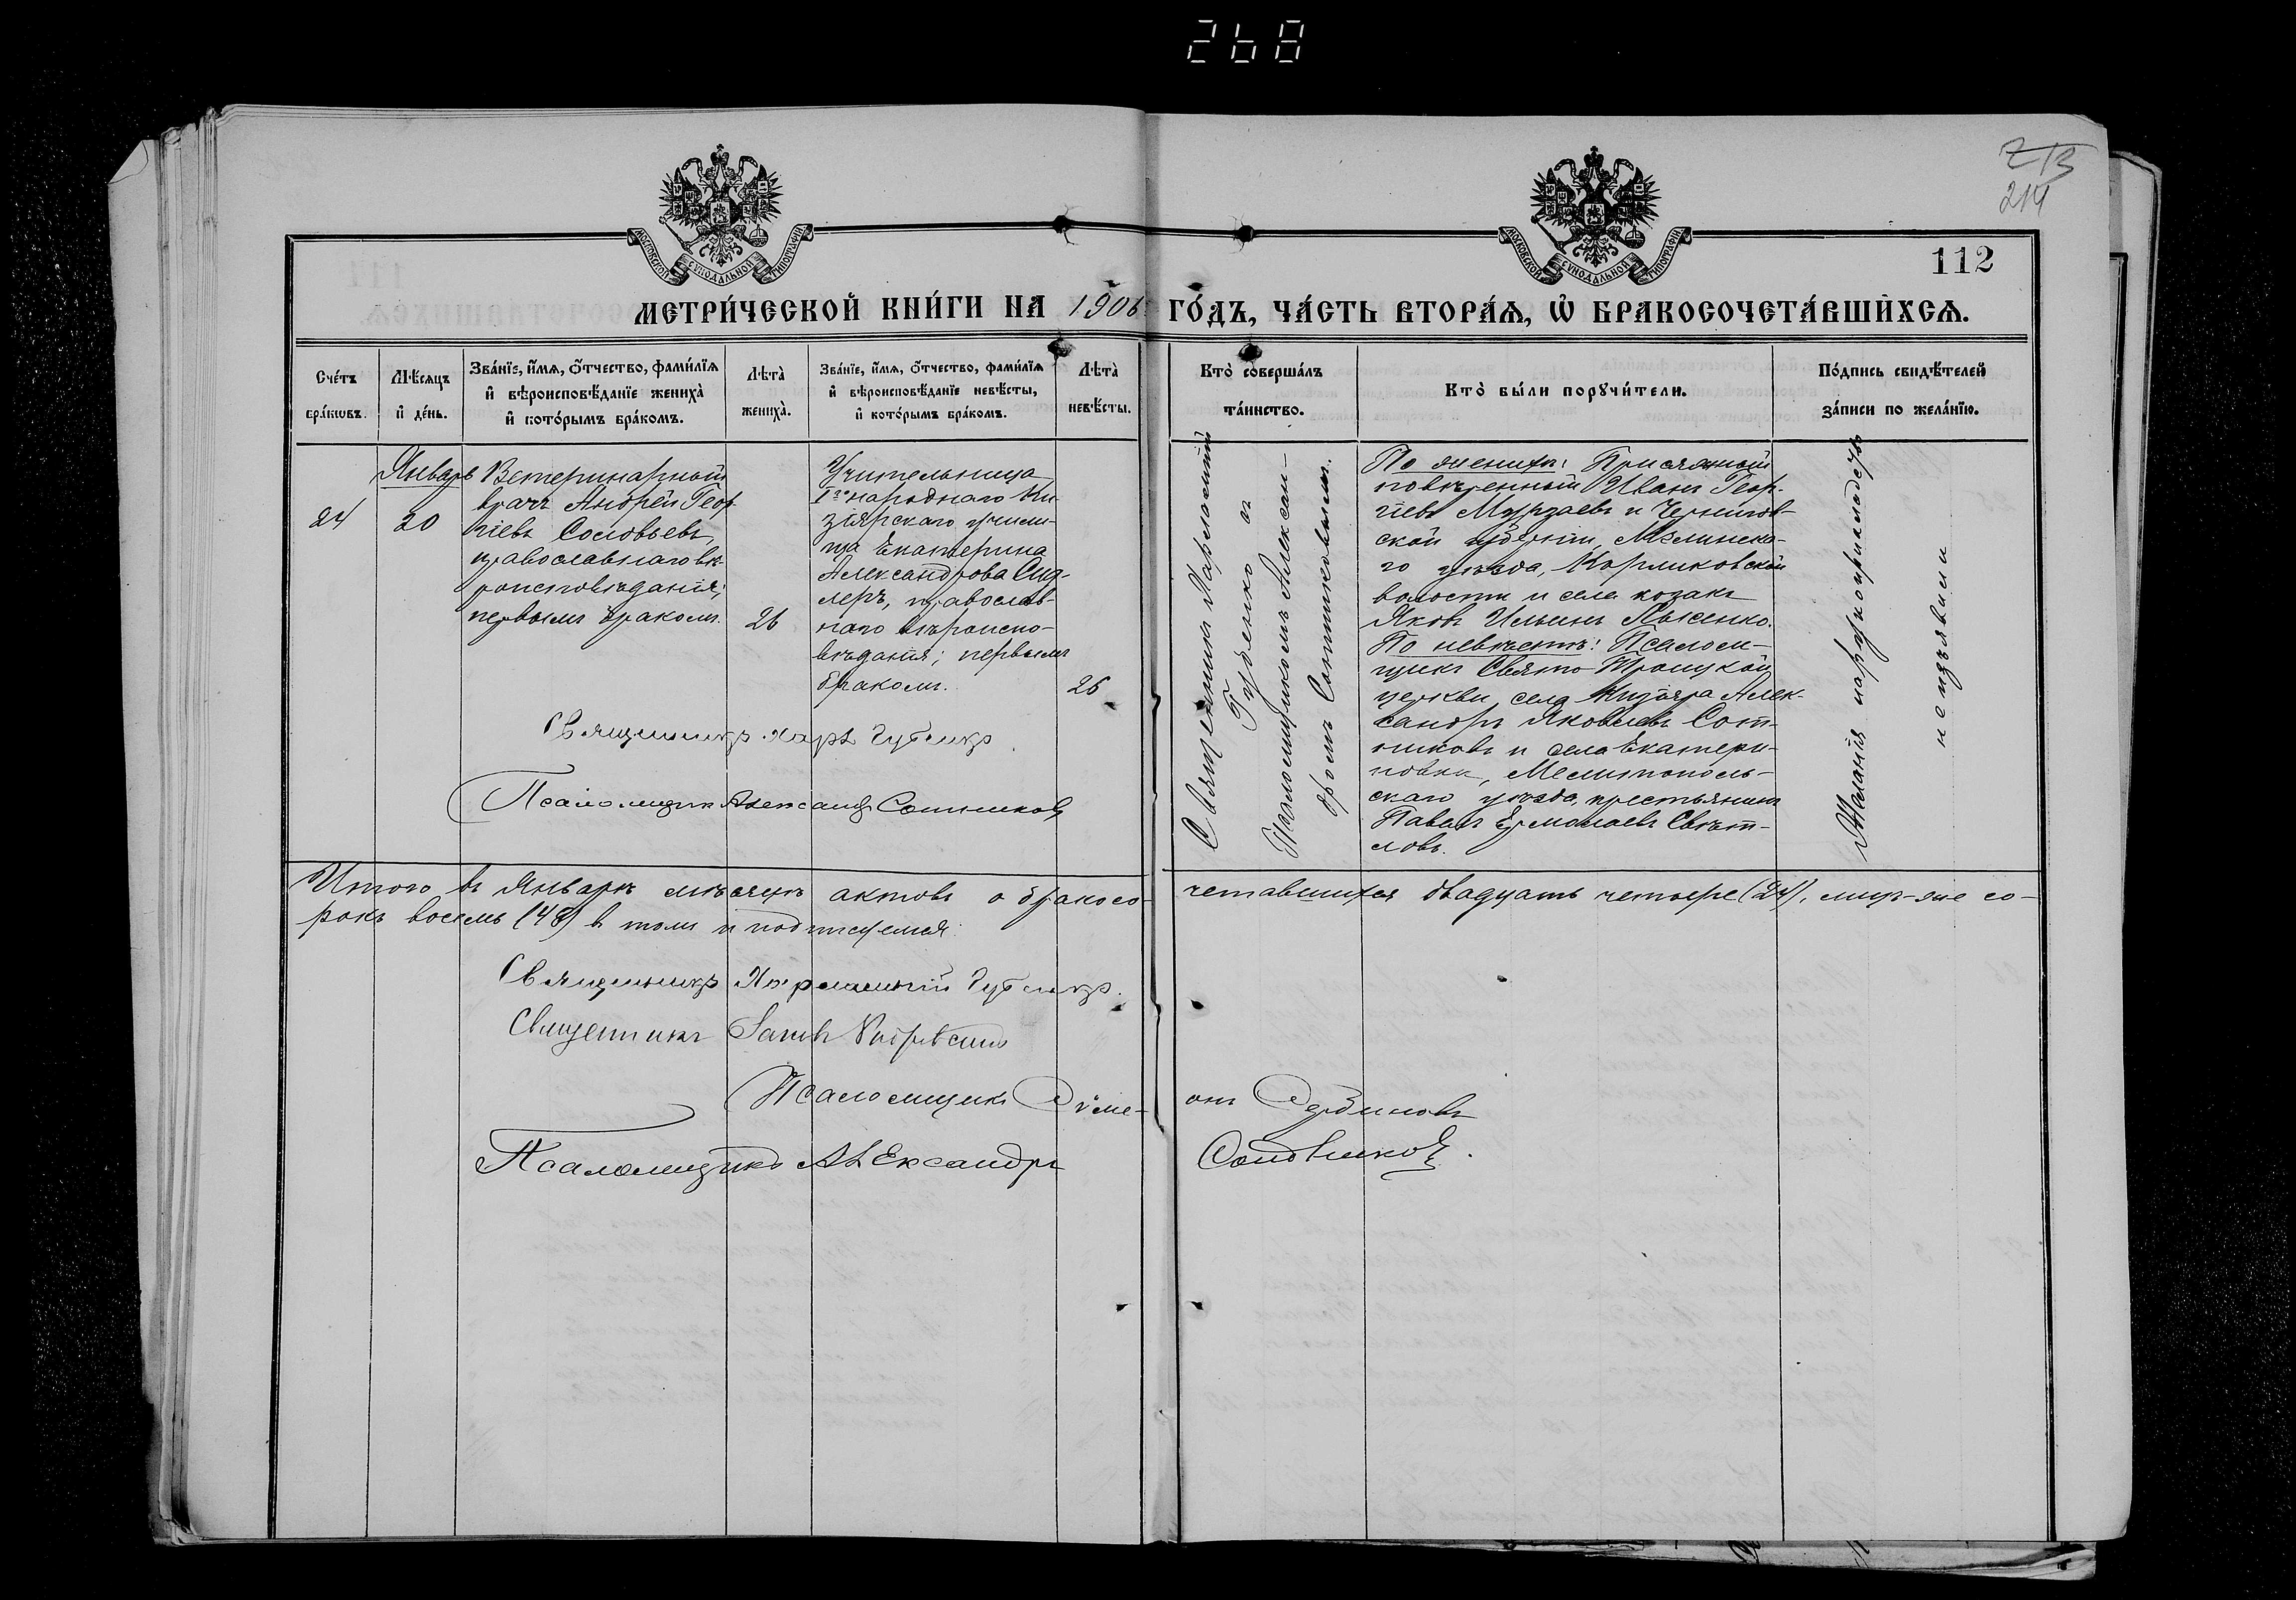 268
213
214
112
МОСКОВСКОЙ СѴНОДАЛЬНОЙ ТИПОГРАФІИ
МОСКОВСКОЙ СѴНОДАЛЬНОЙ ТИПОГРАФІИ
МЕТРИ́ЧЕСКОЙ КНИ́ГИ НА 1906 ГО́ДЪ, ЧА́СТЬ ВТОРА́Ѧ, Ѡ҆ БРАКОСОЧЕТА́ВШИХСѦ.
Сче́тъ бра́ковъ.
Мѣ́сѧцъ и҆ де́нь.
Зва́нїе, и҆́мѧ, ѻ҆́тчество, фами́лїѧ
и҆ вѣроисповѣ́данїе жениха̀
и҆ кото́рымъ бра́комъ.
Лѣта̀ жениха̀.
Зва́нїе, и҆́мѧ, ѻ҆́тчество, фами́лїѧ
и҆ вѣроисповѣ́данїе невѣ́сты,
и҆ кото́рымъ бра́комъ.
Лѣта̀ невѣ́сты.
Кто̀ соверша́лъ та́инство.
Кто̀ бы́ли порꙋчи́тели.
По́дпись свидѣ́телей
за́писи по жела́нїю.
24
Январь
20
Ветеринарный
врачъ Андрей Геор
гіевъ Соловьевъ,
православнаго вѣ-
роисповѣданія;
первымъ бракомъ.
26
Учительница
1го народнаго Ки-
зіярскаго учили-
ща Екатерина
Александрова Сид-
леръ, православ-
наго вѣроиспо-
вѣданія; первымъ
бракомъ.
26
Священникъ Харлампій
Губенко съ
Псаломщикомъ Алексан-
дромъ Сотниковымъ.
По женихѣ: Присяжный
повѣренный Иванъ Геор-
гіевъ Мурзаевъ и Чернигов-
ской губерніи, Мглинска-
го уѣзда,
волости и села козакъ
Яковъ Ильинъ
По невѣстѣ: Псалом-
щикъ Свято-Троицкой
церкви села Кизіяра Алек-
сандръ Яковлевъ Сот-
никовъ и села Екатери-
новки, Мелитополь-
скаго уѣзда, крестьянинъ
Павелъ Ермолаевъ Свѣт-
ловъ.
Желанія къ рукоприкладству
не изъявили
Священникъ Харл. Губенко
Псаломщикъ Александръ Сотниковъ
Итого въ Январѣ мѣсяцѣ актовъ о бракосо-четавшихся двадцать четыре (24), лицъ-же со-
рокъ восемь (48) въ томъ и подписуемся:
Священникъ Харлампій Губенко.
Священникъ
Псаломщикъ Симе-онъ Сербиновъ
Псаломщикъ Александръ Сотниковъ.